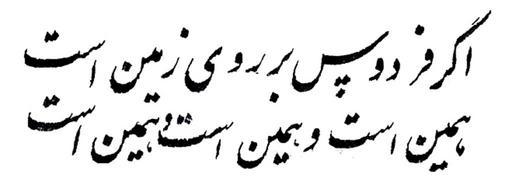 اگر فردوس بر روی زمین است
همین است و همین است و همین است